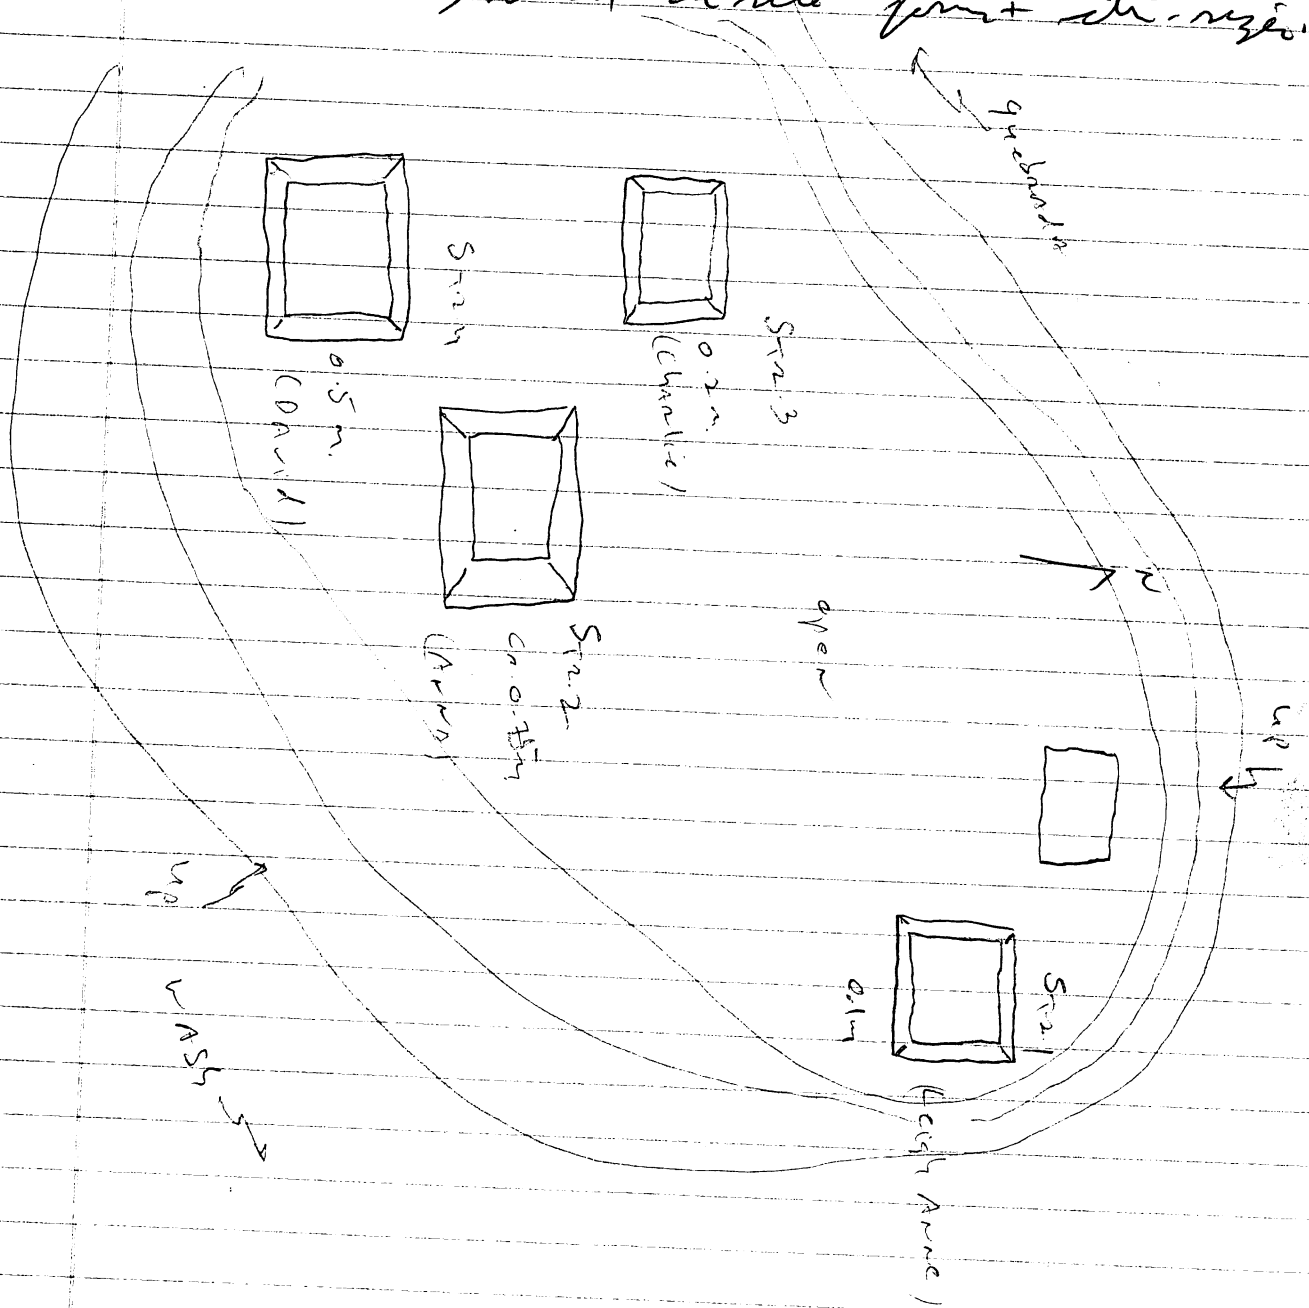 quebrada
Str. 3
0.2 m.
(Charlie)
Str. 4
0.5 m.
(David)
N
open
Str. 2
ca. 0.75m
(Anna)
up
up
Str. 1
0.1m
(Leigh Anne)
wash